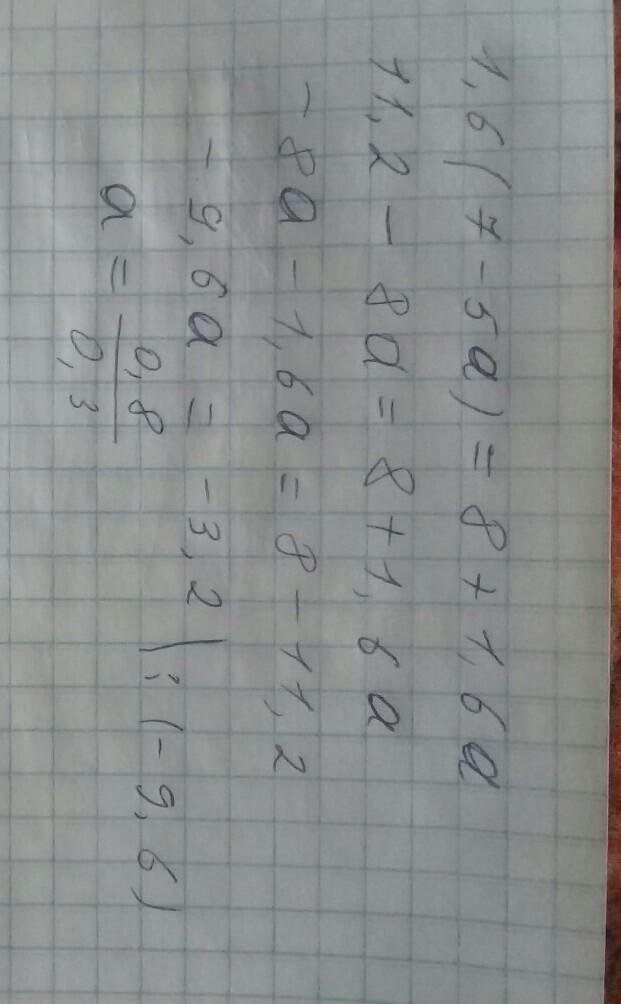 1,6(7-5a)=8+1,6a
11,2-8a=8+1,6a
-8a-1,6a=8-11,2
-9,6a=-3,2 |:(-9,6)
a=0,8/0,3